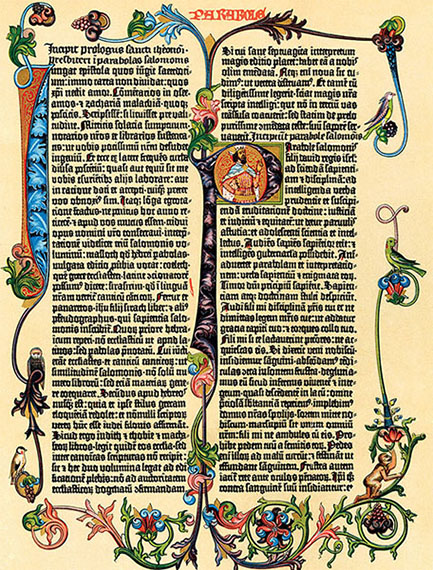 PARABOLE
Incipit prologus sancti iheronimi
presbiteri i parabolas salomonis
Iungat epistola quos iūgit sacerdoci-
um: immo carta non dividat: quos
xpi nectit amor. Cōmētarios in osee
amos· & zachariā malachiā· quoqꝫ
poscitis. Scripsissē: si licuisset pre vali-
tudine. Mittitis solacia sumptuum·
notarios nr̄os et librarios sustenta-
tis: ut vobis potissimū nr̄m desudet
ingeniū. Et ecce ex latere frequēs turba
diversa poscētiū: quasi aut equū sit me
vobis esuriētibus alijs laborare: aut
in ratione dati et accepti· cuiqꝫ preter
vos obnoxiꝰ sim. Itaqꝫ lōga egrota-
tione fractus· ne penitus hoc anno re-
ticerē· et apud vos mutus essem· tridui
opus nomini vr̄o consecravi· interpre-
tationē videlicet triū salomonis vo-
luminū: masloth qd̄ hebrei pabolas·
vulgata editio p̄bia vocat: coeleth·
quē grece ecclesiastē· latine cōcionatorē
possumꝰ dicere: sirasirim· qd̄ i linguā
nr̄am vertit̄ canticū cāticoꝝ. Fertur et
panaretos· ihu filij sirach liber: et aliꝰ
pseudographus· qui sapientia salo-
monis inscribit̄. Quoꝝ priorē hebra-
icum reperi· nō ecclesiasticū ut apud la-
tinos: sed pabolas p̄notatū. Cui iūcti
erāt ecclesiastes· et canticū canticoꝝ: ut
similitudinē salomonis· nō solū nu-
mero libroꝝ: sed etiā materiaꝝ gene-
re coequaret. Secūdus apud hebreos
nusqꝫ est: quia et ipse stilus grecam
eloquētiā redolet: et nōnulli scriptoꝝ
veteꝝ hūc esse iudei filonis affirmāt.
Sicud ergo iudith & thobie & macha-
beoꝝ libros· legit quidē eos ecclīa· sed
inter canonicas scripturas nō recipit:
sic & hec duo volumina legat ad edi-
ficationē plebis: nō ad auctoritatem
ecclesiasticoꝝ dogmatū cōfirmandam.
Si cui sane septuaginta interpretum
magis editio placet: habet eā a nobis
olim emēdatā. Neqꝫ enī nova sic cu-
dimꝰ: ut vetera destruamꝰ. Et tamē cū
diligentissime legerit· sciat magis nr̄a
scripta intelligi: que nō in terciū vas
trāsfusa coacuerīt: sed statim de prelo
purissime cōmēdata teste: suū sapore ser-
vaverīt. Incipiūt parabole salomōis
Parabole salomonis
filij david regis isrl̄:
ad sciendā sapienti-
am & disciplinā: ad
intelligēdā verba
prudentie et suscipi-
endā eruditationē doctrine: iusticiā
et iudiciū & equitatē: ut detur parvulis
astutia: et adolescenti scientia et intel-
lectus. Audiēs sapiēs sapiētior erit: et
intelligēs gubernacla possidebit. Ani-
advertet parabolam et interpretatio-
nem: verba sapientiū & enigmata eoꝝ.
Timor dn̄i principiū sapiētie. Sapien-
tiam atqꝫ doctrinam stulti despiciūt.
Audi fili mi disciplinā pr̄is tui et ne
dimittas legem mr̄is tue: ut addatur
gracia capiti tuo: & torques collo tuo.
Fili mi si te lactaverīt pctōres: ne ac-
quiescas eis. Si dixerīt veni nobiscū·
insidiemur sāguini· abscōdamꝰ tēdi-
culas cōtra insontem frustra· degluti-
amus eū sicud infernus viventē & inte-
grum· quasi descēdentē in lacū: omnē
p̄ciosā substantiā reperiemꝰ· implebimꝰ
domus nr̄as spolijs· sortem mitte no-
biscum· marsupiū sit unum omniū
nr̄m: fili mi ne ambules cū eis. Pro-
hibe pedem tuū a semitis eoꝝ. Pedes
eni illoꝝ ad malū currūt: & festināt ut
effundant sāguinem. Frustra autem
iacit̄ rete ante oculos pēnatoꝝ. Ip̄i qꝫ
contra sanguinē suū insidiantur: et